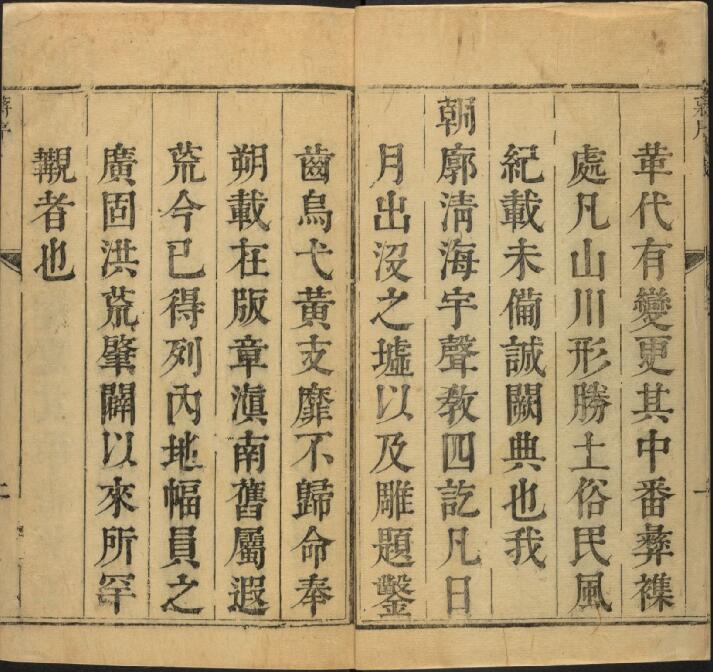 革代有變更其中番彝襍
處凡山川形勝土俗民風
紀載未備誠闕典也我
朝廓淸海宇聲敎四訖凡日
月出沒之墟以及雕題鑿
齒烏弋黃支靡不歸命奉
朔載在版章滇南舊屬遐
荒今已得列內地幅員之
廣固洪荒肇闢以來所罕
覯者也